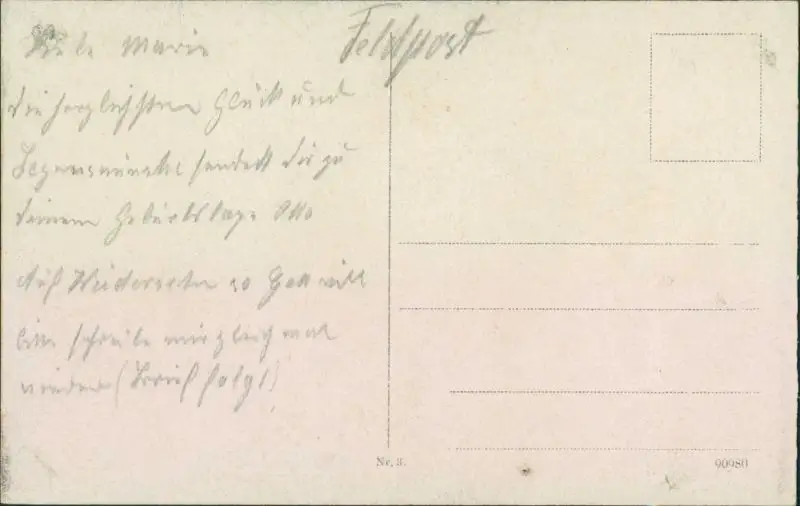 Feldpost
Liebe Marie
Die herzlichsten Glück und
Segenswünsche sendet Dir zu
Deinem Geburtstage Otto
Auf Wiedersehen so Gott will
bitte schreibe mir gleich mal
wieder (Brief folgt)
Nr. 3.
90980